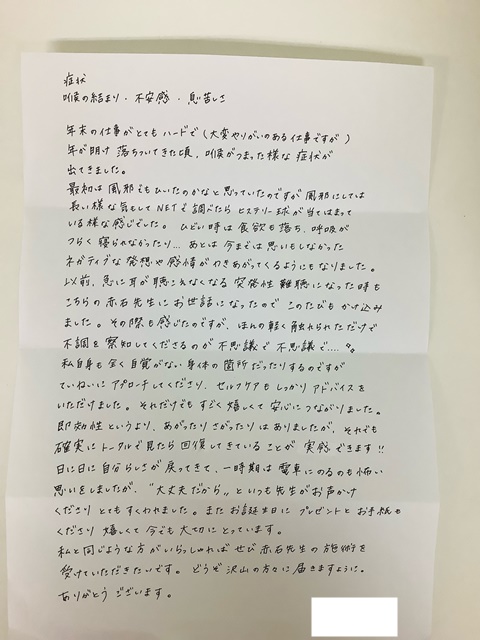 症状
喉の結まり・不安感・息苦しさ
年末の仕事がとてもハードで(大変やりがいのある仕事ですが)
年が明け 落ちついてきた頃、喉がつまった様な 症状が
出てきました。
最初は 風邪でもひいたのかなと思っていたのですが 風邪にしては
長い様な気もして NETで調べたら ヒステリー球が 当てはまって
いる様な感じでした。 ひどい時は 食欲も落ち、呼吸が
つらく 寝られなかったり… あとは 今までは思いもしなかった
ネガティブな 発想や感情が わきあがってくるようにもなりました。
以前、急に耳が聴こえなくなる 突発性難聴になった時も
こちらの 赤石先生に お世話になったので このたびも かけ込み
ました。その際も 感じたのですが、ほんの軽く触れられただけで
不調を 察知してくださるのが 不思議で 不思議で….
私自身も 全く自覚がない身体の箇所だったりするのですが
ていねいに アプローチしてくださり、セルフケアもしっかりアドバイスを
いただけました。それだけでも すごく嬉しくて 安心につながりました。
即効性というより、あがったり さがったりは ありましたが、それでも
確実にトータルで見たら 回復してきていることが 実感できます!!
日に日に 自分らしさが 戻ってきて、一時期は 電車にのるのも怖い
思いをしましたが、"大丈夫だから〃といつも先生が お声かけ
くださり とてもすくわれました。また お誕生日に プレゼントと お手紙も
くださり 嬉しくて 今でも 大切に とっています。
私と同じような方が いらっしゃれば ぜひ 赤石先生の 施術を
受けていただきたいです。 どうぞ 沢山の方々に 届きますように。
ありがとう ございます。